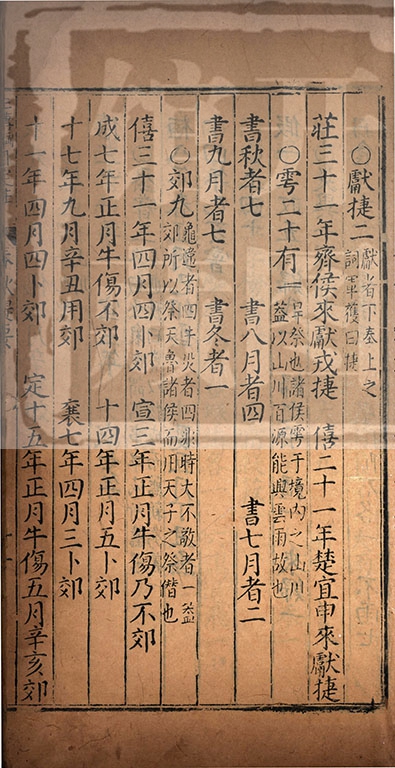 〇獻捷二獻者下奉上之
詞軍獲曰捷
莊三十一年齊侯來獻戎捷　僖二十一年楚宜申來獻捷
〇雩二十有一旱祭也諸侯雩于境內之山川
蓋以山川百源能興雲雨故也
書秋者七　書八月者四　書七月者二
書九月者七　書冬者一
〇郊九龜違者四牛災者四非時大不敬者一蓋
郊所以祭天魯諸侯而用天子之祭僭也
僖三十一年四月四卜郊　宣三年正月牛傷乃不郊
成七年正月牛傷不郊　十年四月五卜郊
十七年九月辛丑用郊　襄七年四月三卜郊
十一年四月四卜郊　定十五年正月牛傷五月辛亥郊